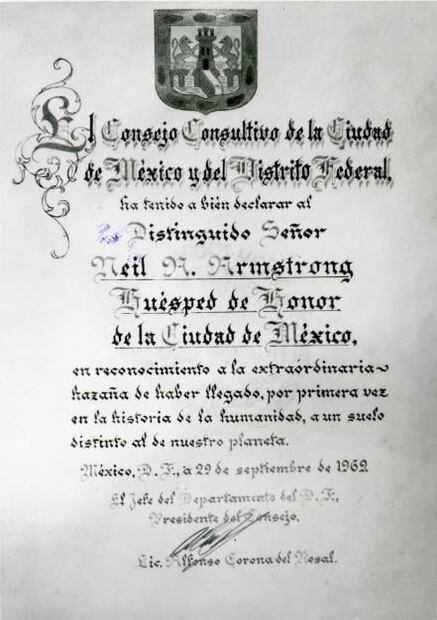 El Consejo Consultivo de la Ciudad
de México y del Distrito Federal,
ha tenido a bién declarar al
Distinguido Señor
Neil A. Armstrong
Huésped de Honor
de la Ciudad de México,
en reconocimiento a la extraordinaria
hazaña de haber llegado, por primera vez
en la historia de la humanidad, a un suelo
distinto al de nuestro planeta.
México, D. F., a 29 de septiembre de 1969.
El Jefe del Departamento del D. F.,
Presidente del Consejo,
Lic. Alfonso Corona del Rosal.